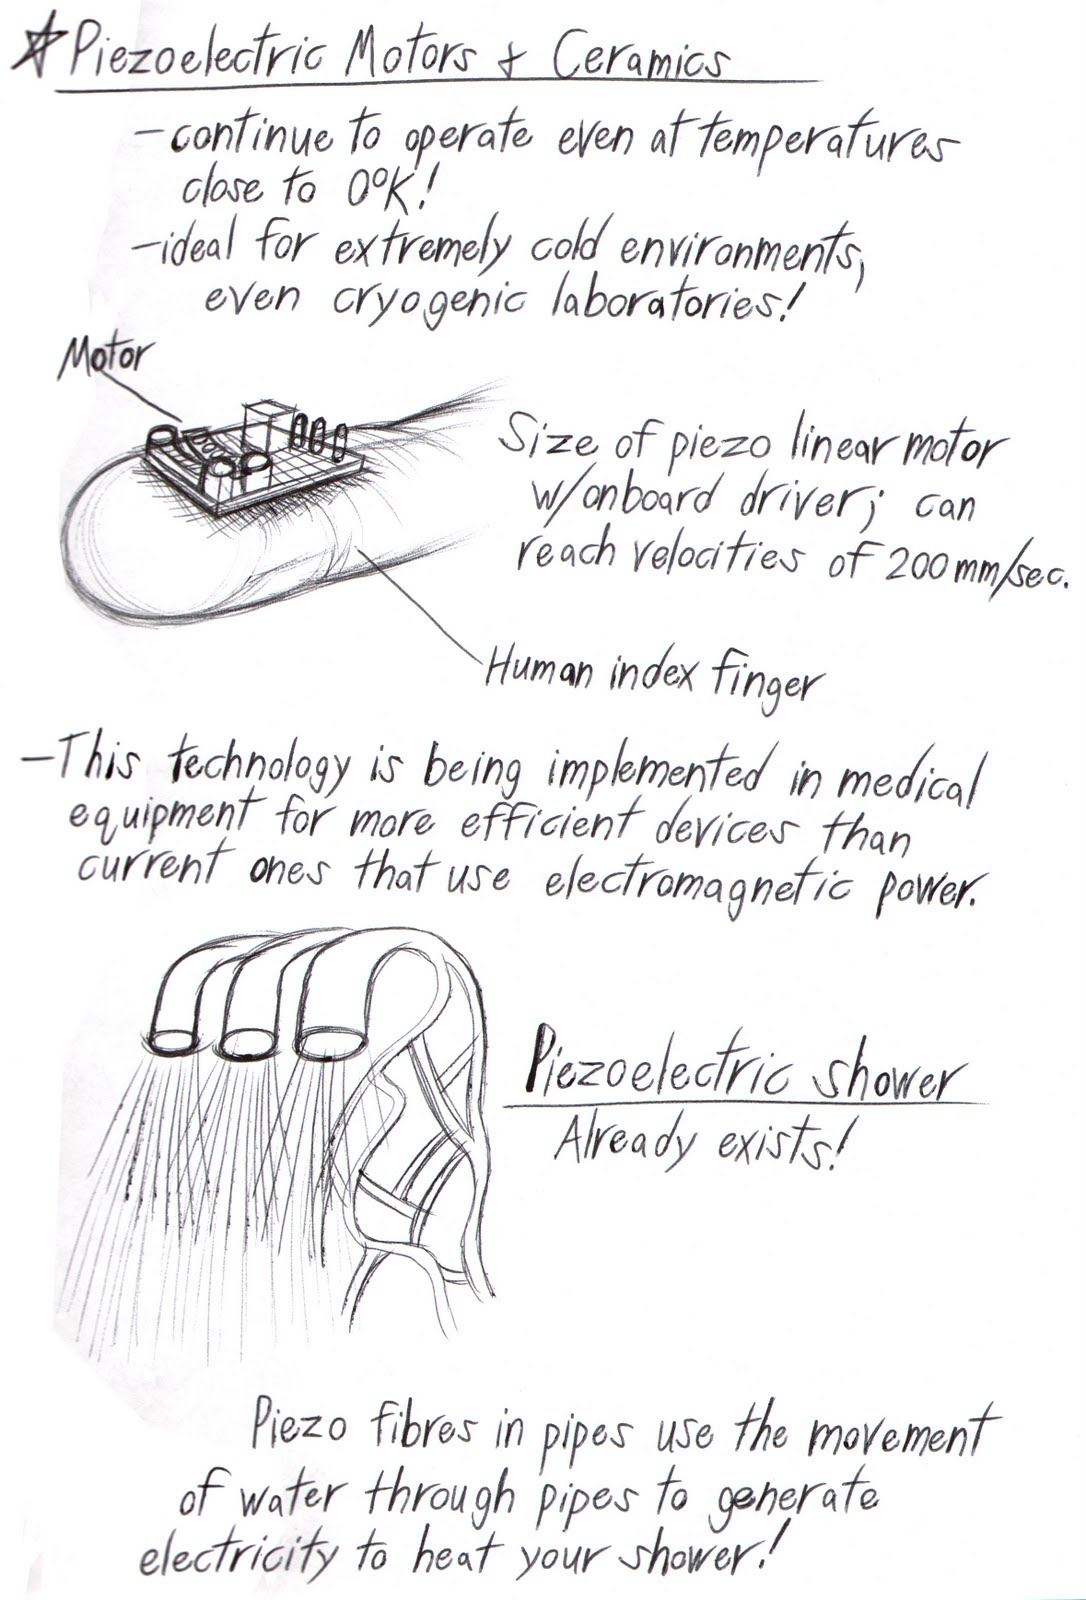 Piezoelectric Motors & Ceramics
- continue to operate even at temperatures
close to 0°K!
- ideal for extremely cold environments,
even cryogenic laboratories!
Motor
Size of piezo linear motor
w/onboard driver; can
reach velocities of 200mm/sec.
Human index finger
- This technology is being implemented in medical
equipment for more efficient devices than
current ones that use electromagnetic power.
Piezoelectric shower
Already exists!
Piezo fibres in pipes use the movement
of water through pipes to generate
electricity to heat your shower!